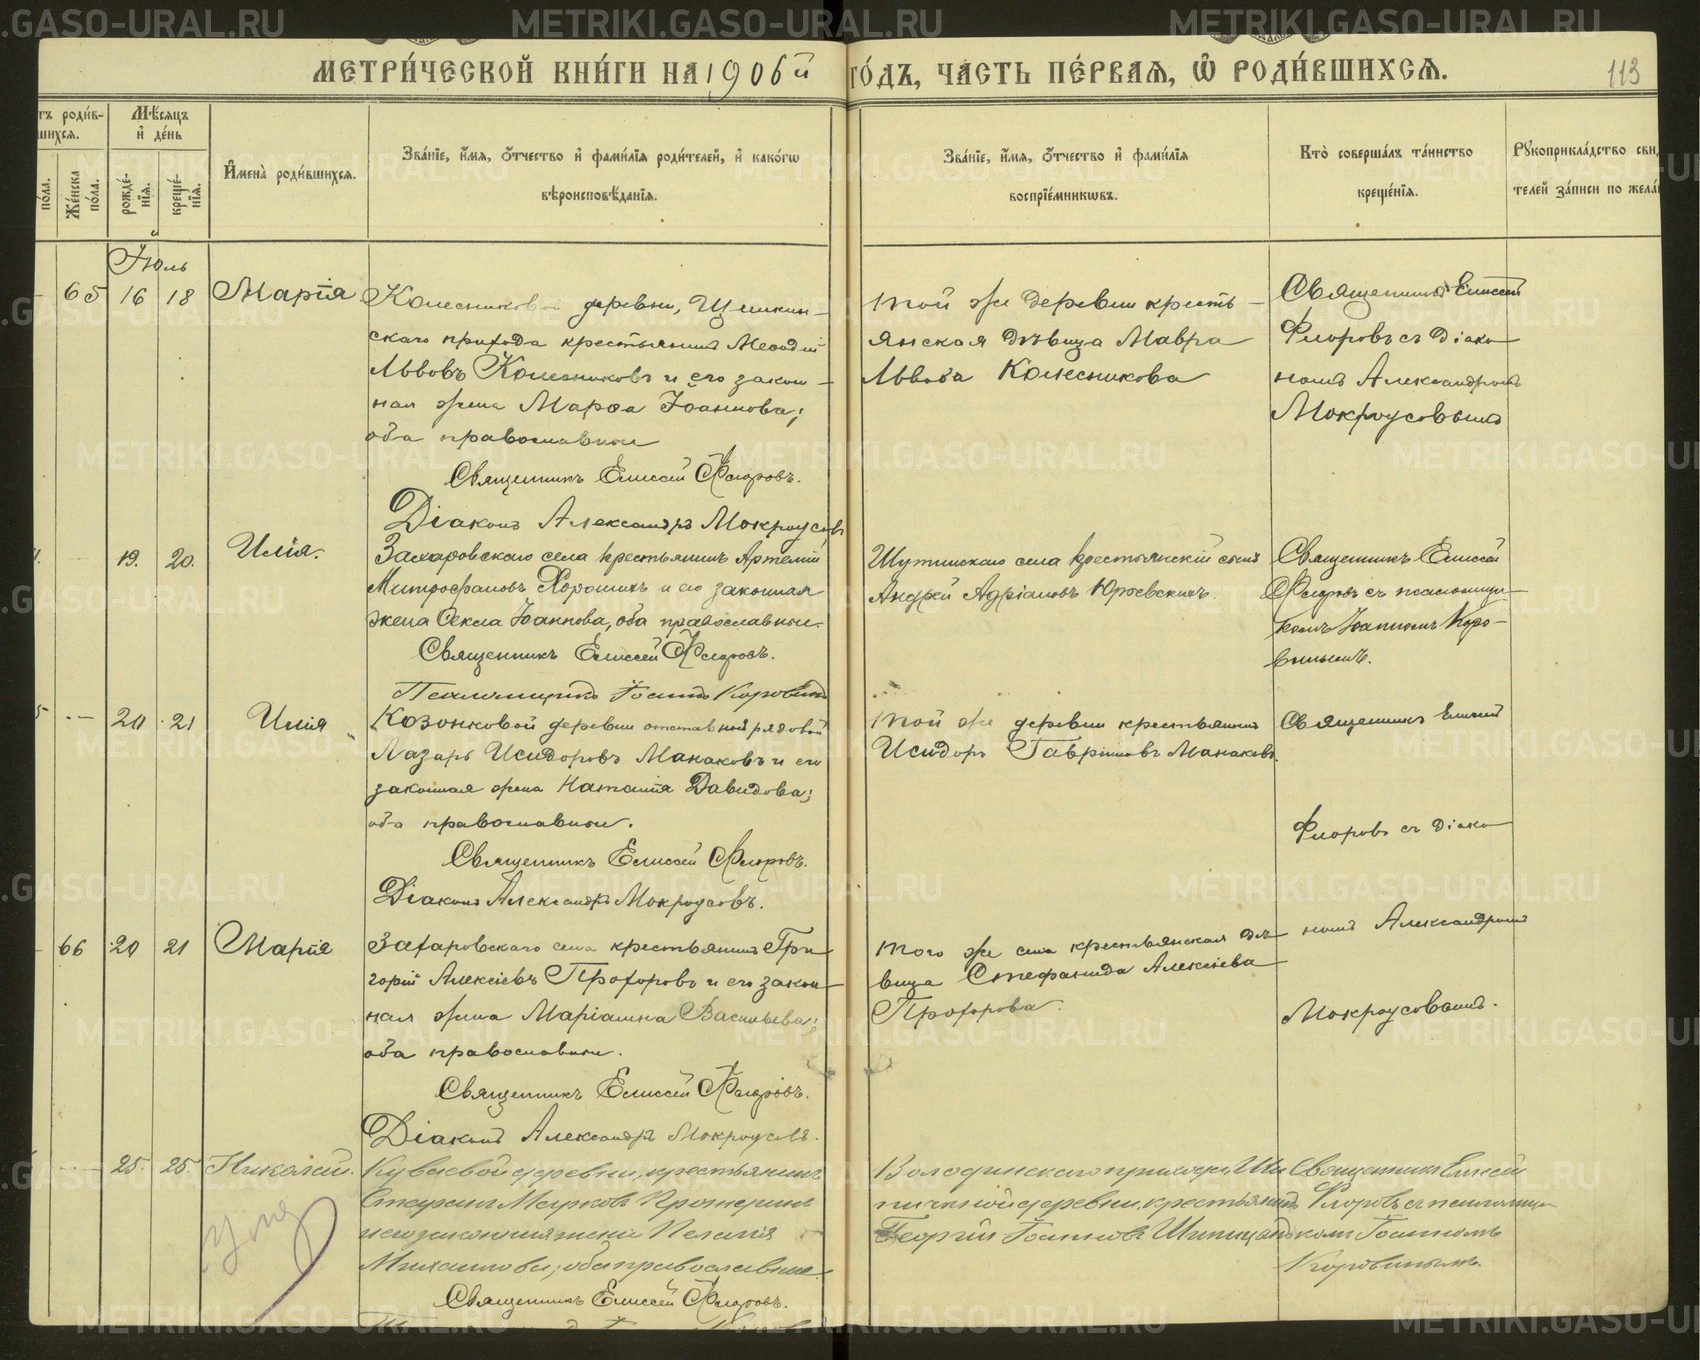 МЕТРИ́ЧЕСКОЙ КНИ́ГИ НА 1906й ГО́ДЪ, ЧА́СТЬ ПЕ́РВАЯ, Ѽ РОДИ́ВШИХСЯ.
113
тъ роди́в-
шихся.
по́ла.
Же́нска
по́ла.
Мѣ́сяцъ
и҆ де́нь
рожде́-
нїя.
креще́-
нїя.
И҆мена̀ роди́вшихся.
Зва́нїе, и҆́мя, ѻ҆́тчество и҆ фами́лїя роди́телей, и҆ како́гѡ
вѣроисповѣ́данїя.
Зва́нїе, и҆́мя, ѻ҆́тчество и҆ фами́лїя
воспрїе́мникѡвъ.
Кто̀ соверша́лъ та́инство
креще́нїя.
Рукоприкла́дство сви
телей за́писи по жела
Іюль
65 16 18 Марія
Колесниковой деревни, Щелкин-
скаго прихода крестьянинъ Меѳодій
Львовъ Колесниковъ и его закон-
ная жена Марѳа Іоаннова;
оба православные
Священникъ Елиссей Флоровъ.
Діаконъ Александръ Мокроусовъ
той же деревни кресть-
янская дѣвица Мавра
Львова Колесникова
Священникъ Елиссей
Флоровъ съ Діако-
номъ Александромъ
Мокроусовымъ
19. 20. Илія.
Захаровскаго села крестьянинъ Артемій
Митрофановъ Хорошихъ и его законная
жена Ѳекла Іоаннова, оба православные.
Священникъ Елиссей Флоровъ.
Псаломщикъ Іоаннъ Коровинъ
Шутинскаго села крестьянскій сынъ
Андрей Адріановъ Юровскихъ.
Священникъ Елиссей
Флоровъ съ псаломщи-
комъ Іоанномъ Коро-
винымъ.
20 21 Илія
Казонковой деревни отставной рядовой
Лазарь Исидоровъ Манаковъ и его
законная жена Наталія Давидова;
оба православные.
Священникъ Елиссей Флоровъ.
Діаконъ Александръ Мокроусовъ.
той же деревни крестьянинъ
Исидоръ Гавріиловъ Манаковъ.
Священникъ Елиссей
Флоровъ съ Діако-
номъ Александромъ
Мокроусовымъ.
66 20 21 Марія
Захаровскаго села крестьянинъ Гри
горій Алексіевъ Прохоровъ и его закон-
ная жена Маріамна Васильева;
оба православные.
Священникъ Елиссей Флоровъ.
Діаконъ Александръ Мокроусовъ.
того же села крестьянская дѣ-
вица Стефанида Алексіева
Прохорова.
25. 25. Николай.
Куваевой деревни, крестьянинъ
Стефанъ Марковъ
и его законная жена Пелагія
Михаилова; оба православные
Священникъ Елиссей Флоровъ.
Володинскаго прихода, Ши
пичной деревни, крестьянинъ
Георгій Іоанновъ Шипицынъ
Священникъ Елиссей
Флоровъ съ псаломщи
комъ Іоанномъ
Коровинымъ.
METRIKI.GASO-URAL.RU